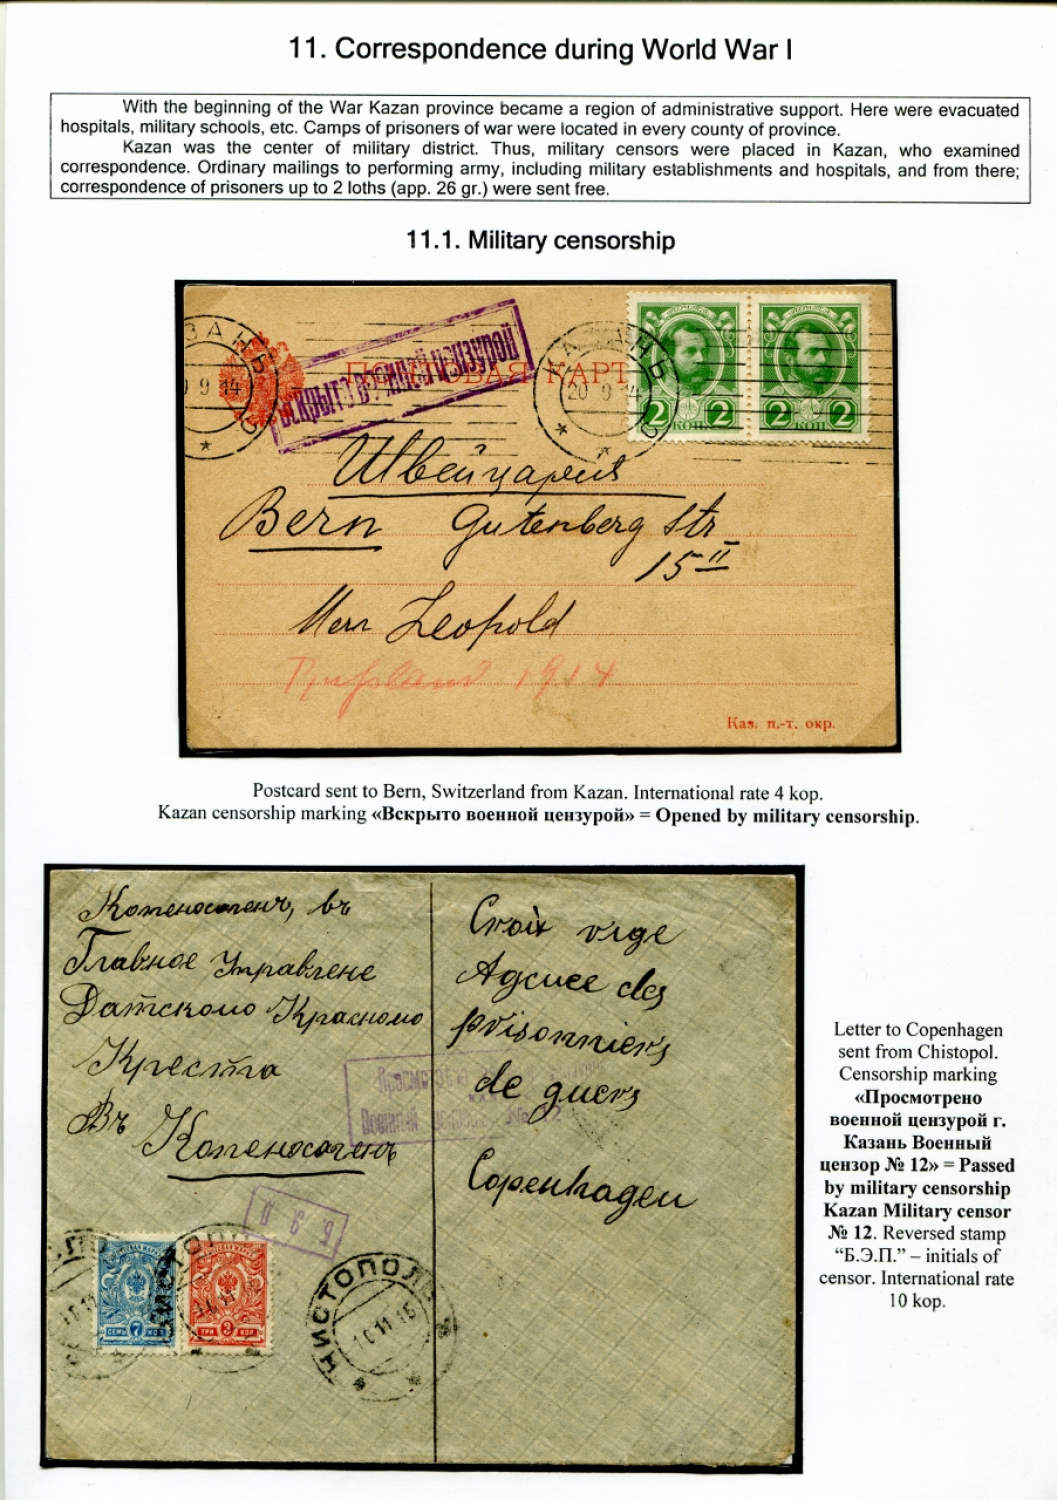 11. Correspondence during World War I
With the beginning of the War Kazan province became a region of administrative support. Here were evacuated
hospitals, military schools, etc. Camps of prisoners of war were located in every county of province.
Kazan was the center of military district. Thus, military censors were placed in Kazan, who examined
correspondence. Ordinary mailings to performing army, including military establishments and hospitals, and from there;
correspondence of prisoners up to 2 loths (app. 26 gr.) were sent free.
11.1. Military censorship
КАЗАНЬ
20 9 14
ПОЧТОВАЯ КАРТ
Вскрыто военной цензурой
2 КОП. 2
2 КОП. 2
Швейцария
Bern Gutenberg Str
15 II
Herr Leopold
Russland 1914
Каз. п.-т. окр.
Postcard sent to Bern, Switzerland from Kazan. International rate 4 kop.
Kazan censorship marking «Вскрыто военной цензурой» = Opened by military censorship.
Копеносагенъ, въ
Главное Управлене
Датскаго Краснаго
Креста
Въ Копеносагенъ
Croix
Agcuee des
prisonniers
de guers
Copenhagen
Военный № 12
Б Э П
СЕМЬ 7 КОП
ТРИ 3 КОП
ЧИСТОПОЛЬ
10 11 15
Letter to Copenhagen
sent from Chistopol.
Censorship marking
«Просмотрено
военной цензурой г.
Казань Военный
цензор № 12» = Passed
by military censorship
Kazan Military censor
№ 12. Reversed stamp
“Б.Э.П.” – initials of
censor. International rate
10 kop.